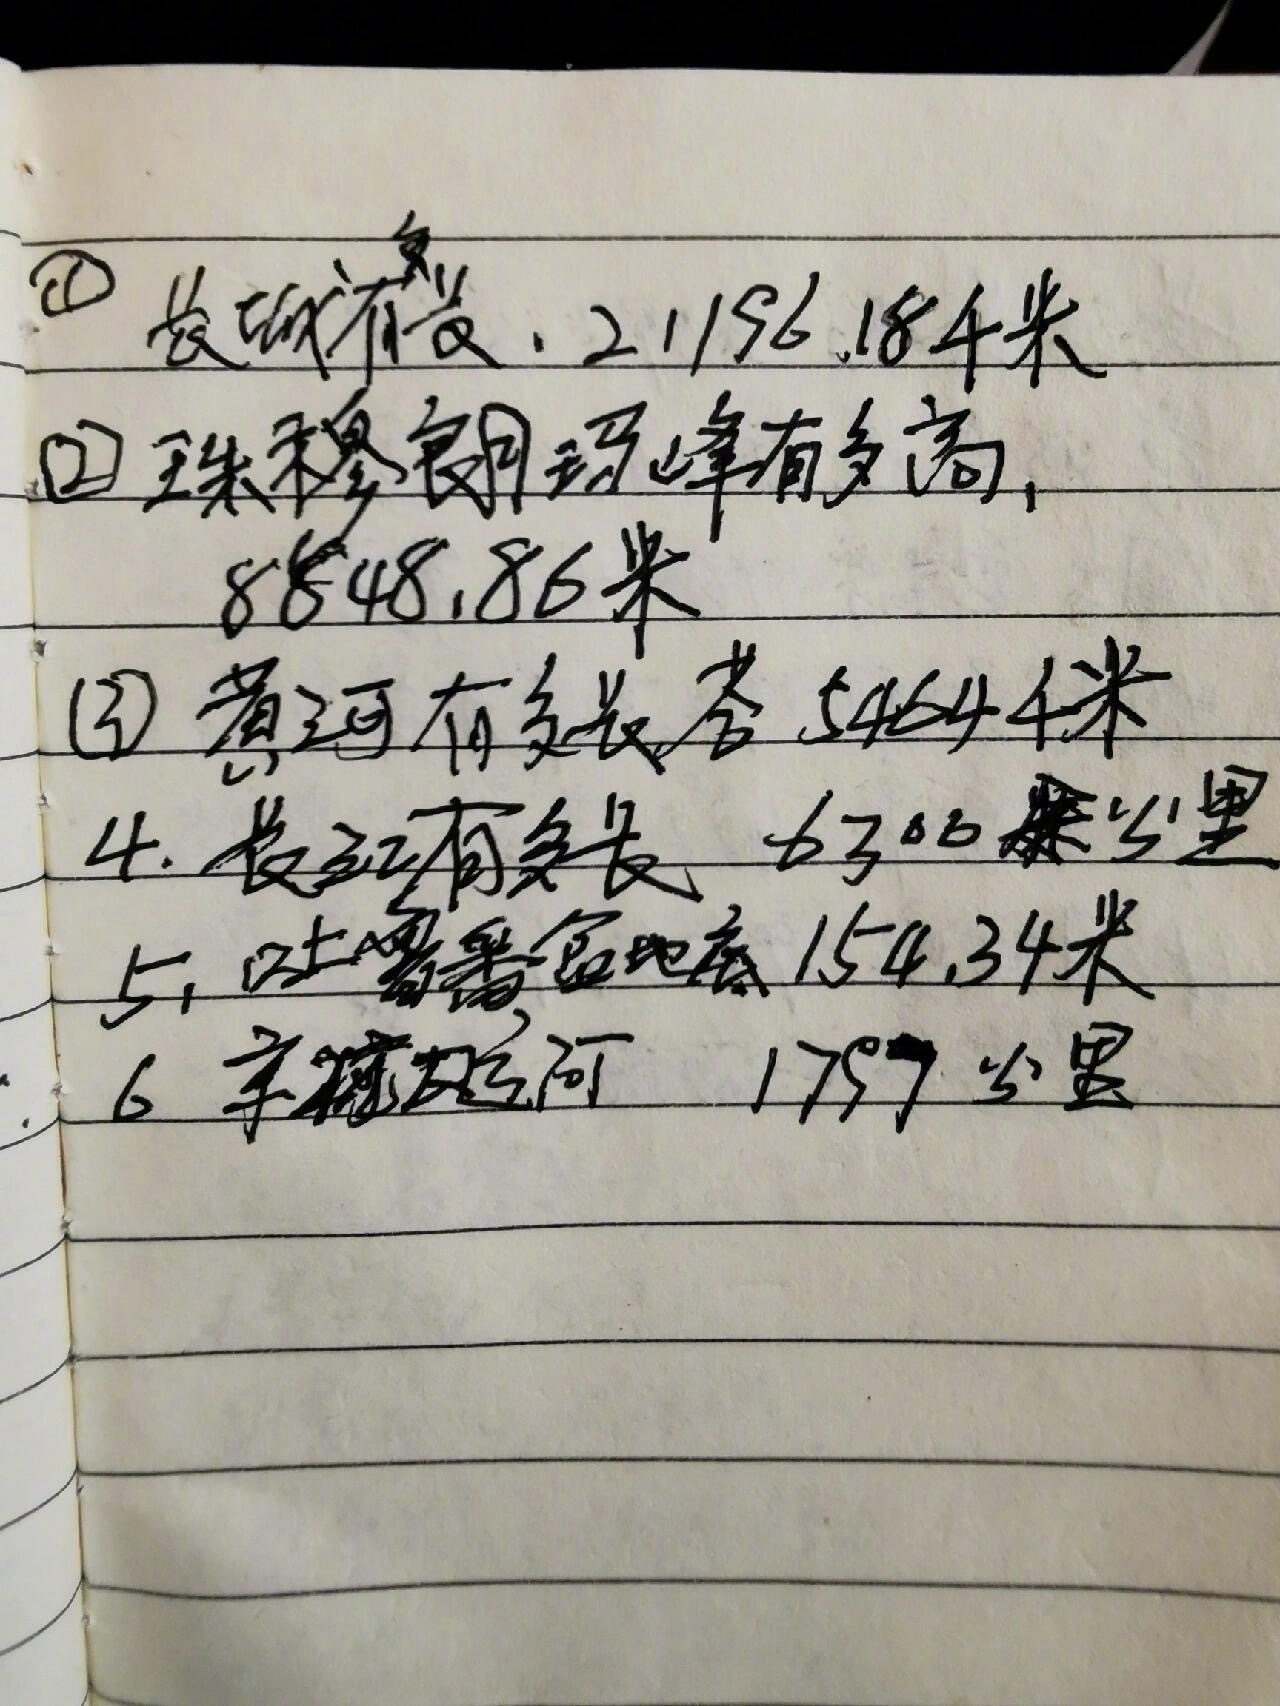 ① 长城有多长.21196.18千米
② 珠穆朗玛峰有多高,
8848.86米
(3) 黄河有多长,答5464千米
4. 长江有多长 6300公里
5, 吐鲁番盆地底154.34米
6 京杭大运河 1797公里